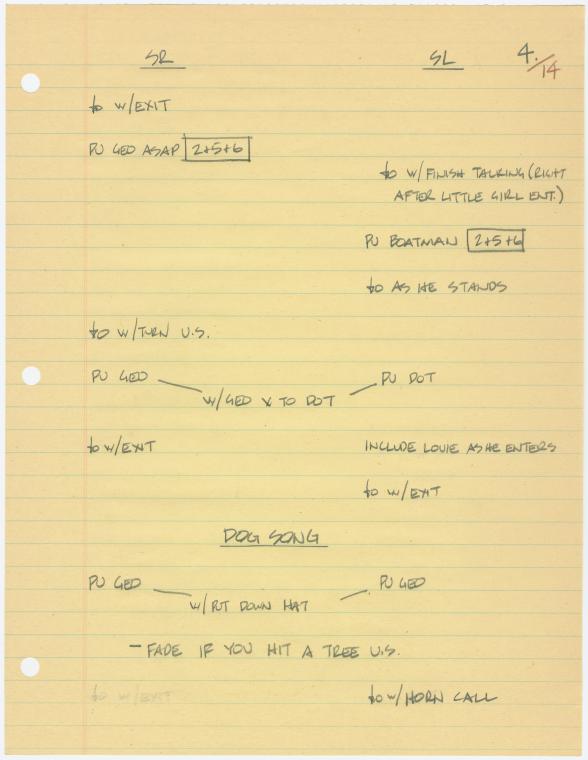 SR SL 4./14
fo w/EXIT
PU GEO ASAP 2+5+6
fo w/ FINISH TALKING (RIGHT
AFTER LITTLE GIRL ENT.)
PU BOATMAN 2+5+6
fo AS HE STANDS
fo w/TURN U.S.
PU GEO PU DOT
w/GEO X TO DOT
fo w/EXIT INCLUDE LOUIE AS HE ENTERS
fo w/EXIT
DOG SONG
PU GEO PU GEO
w/ PUT DOWN HAT
- FADE IF YOU HIT A TREE U.S.
fo w/EXIT fo w/HORN CALL